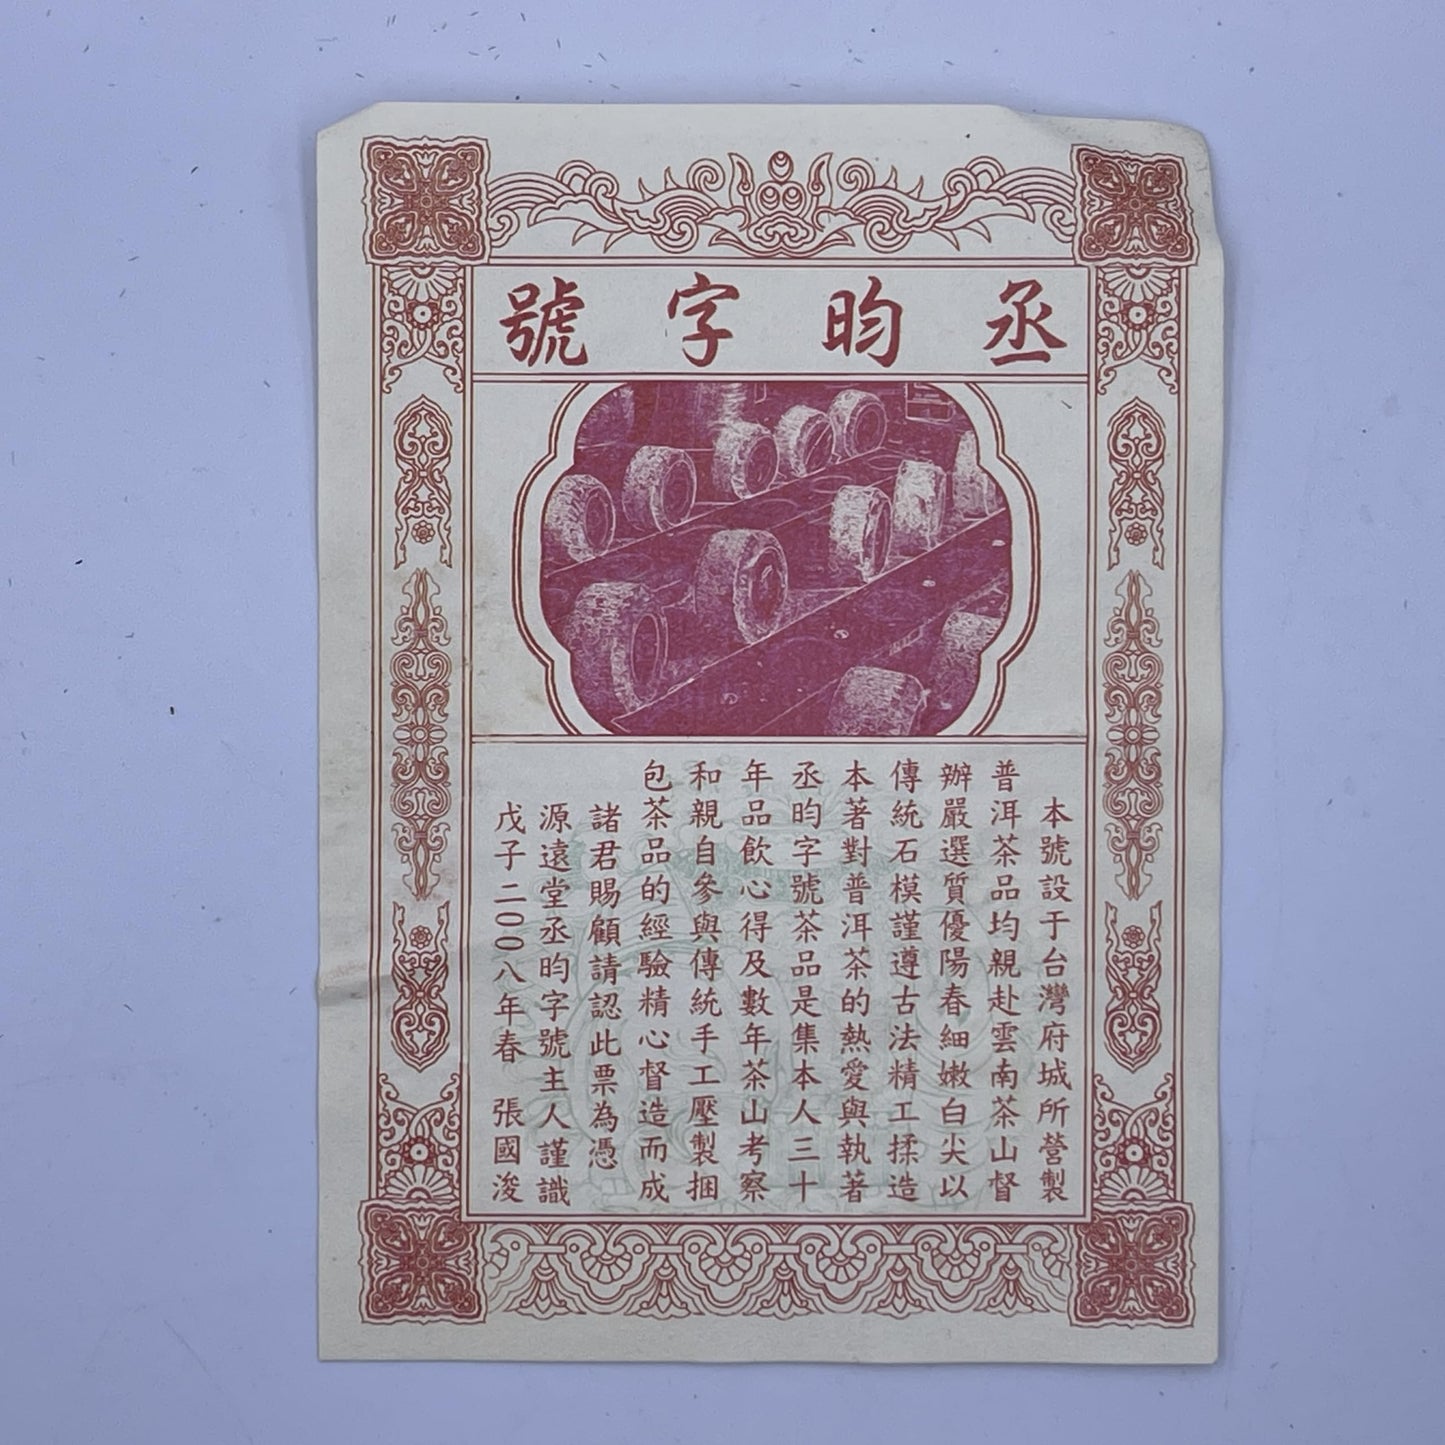 丞昀字號
本號設于台灣府城所營製
普洱茶品均親赴雲南茶山督
辦嚴選質優陽春細嫩白尖以
傳統石模謹遵古法精工揉造
本著對普洱茶的熱愛與執著
丞昀字號茶品是集本人三十
年品飲心得及數年茶山考察
和親自參與傳統手工壓製捆
包茶品的經驗精心督造而成
諸君賜顧請認此票為憑
源遠堂丞昀字號主人謹識
戊子二〇〇八年春 張國浚